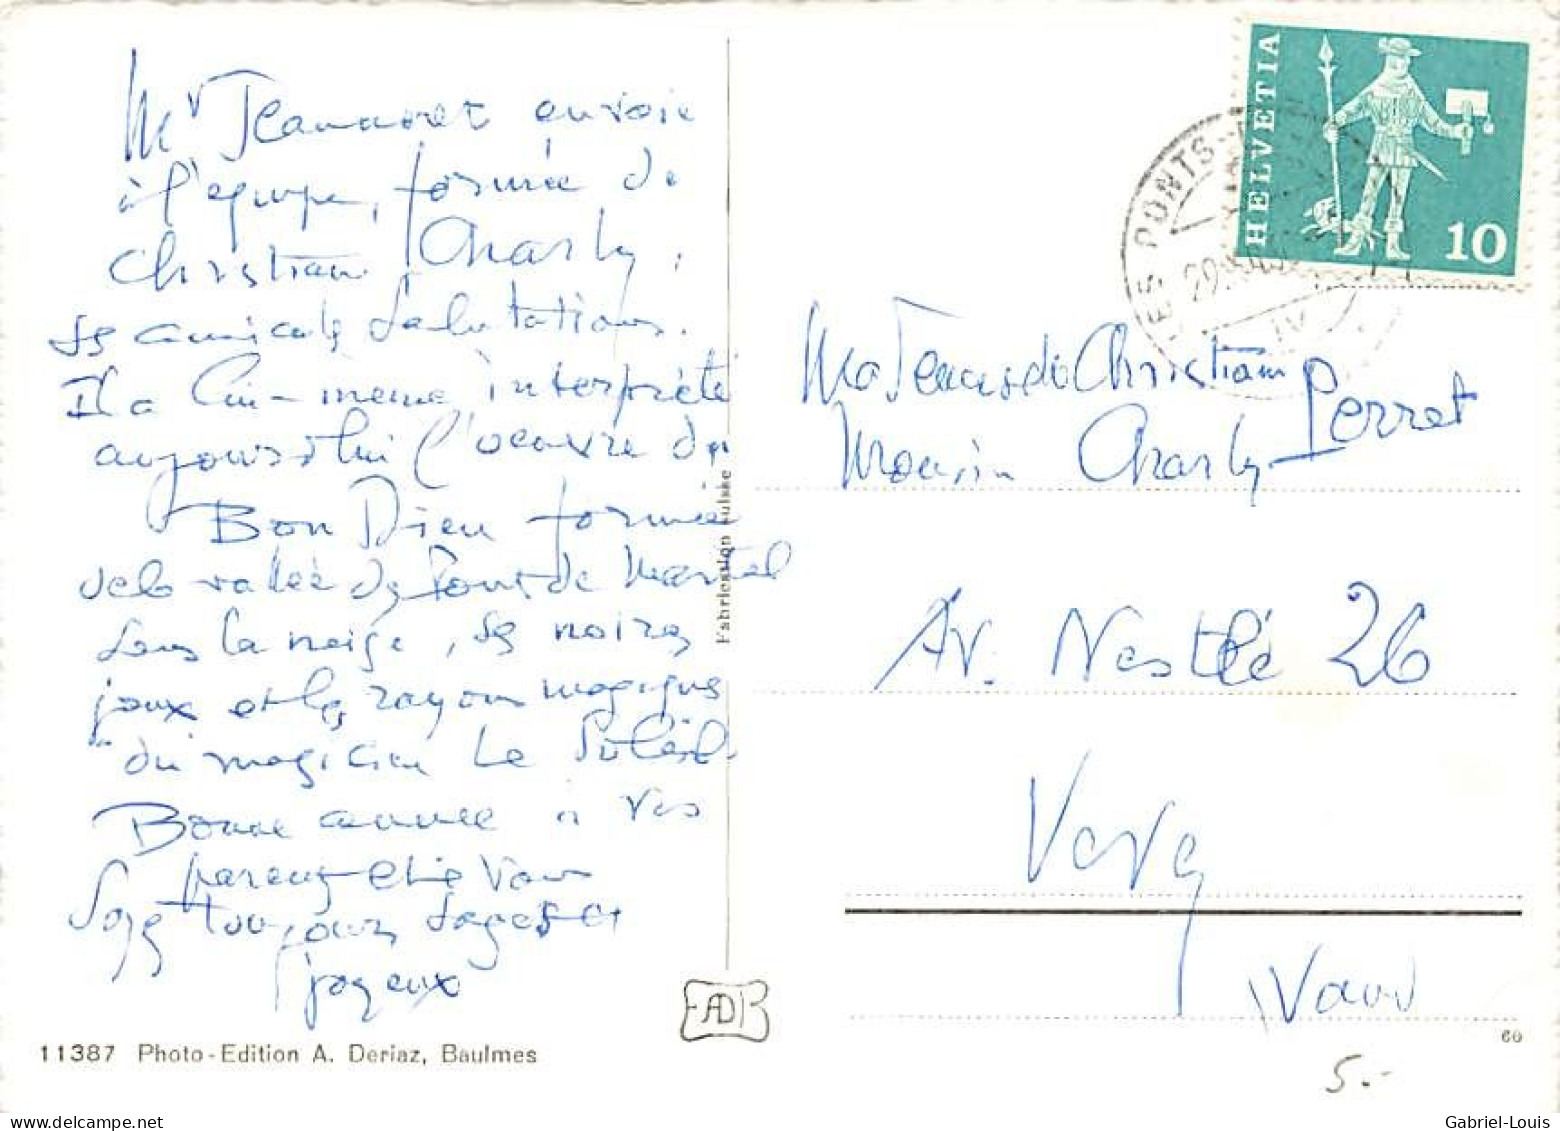 Mr Jeanneret envoie
à l'équipe, formée de
Christian Charly,
ses amicales salutations.
Il a lui-même interprété
aujourd'hui l'oeuvre du
Bon Dieu formée
de la vallée des Ponts de Martel
sous la neige, ses noires
joux et les rayons magiques
du magicien Le Soleil
Bonne année à vos
parents et à vous
Soyez toujours sages et
joyeux
11387 Photo-Edition A. Deriaz, Baulmes
Fabrication suisse
HELVETIA
10
LES PONTS-
Christian
Perret
Charly
Av. Nestlé 26
Vevey
Vaud
60
5.-
Gabriel-Louis